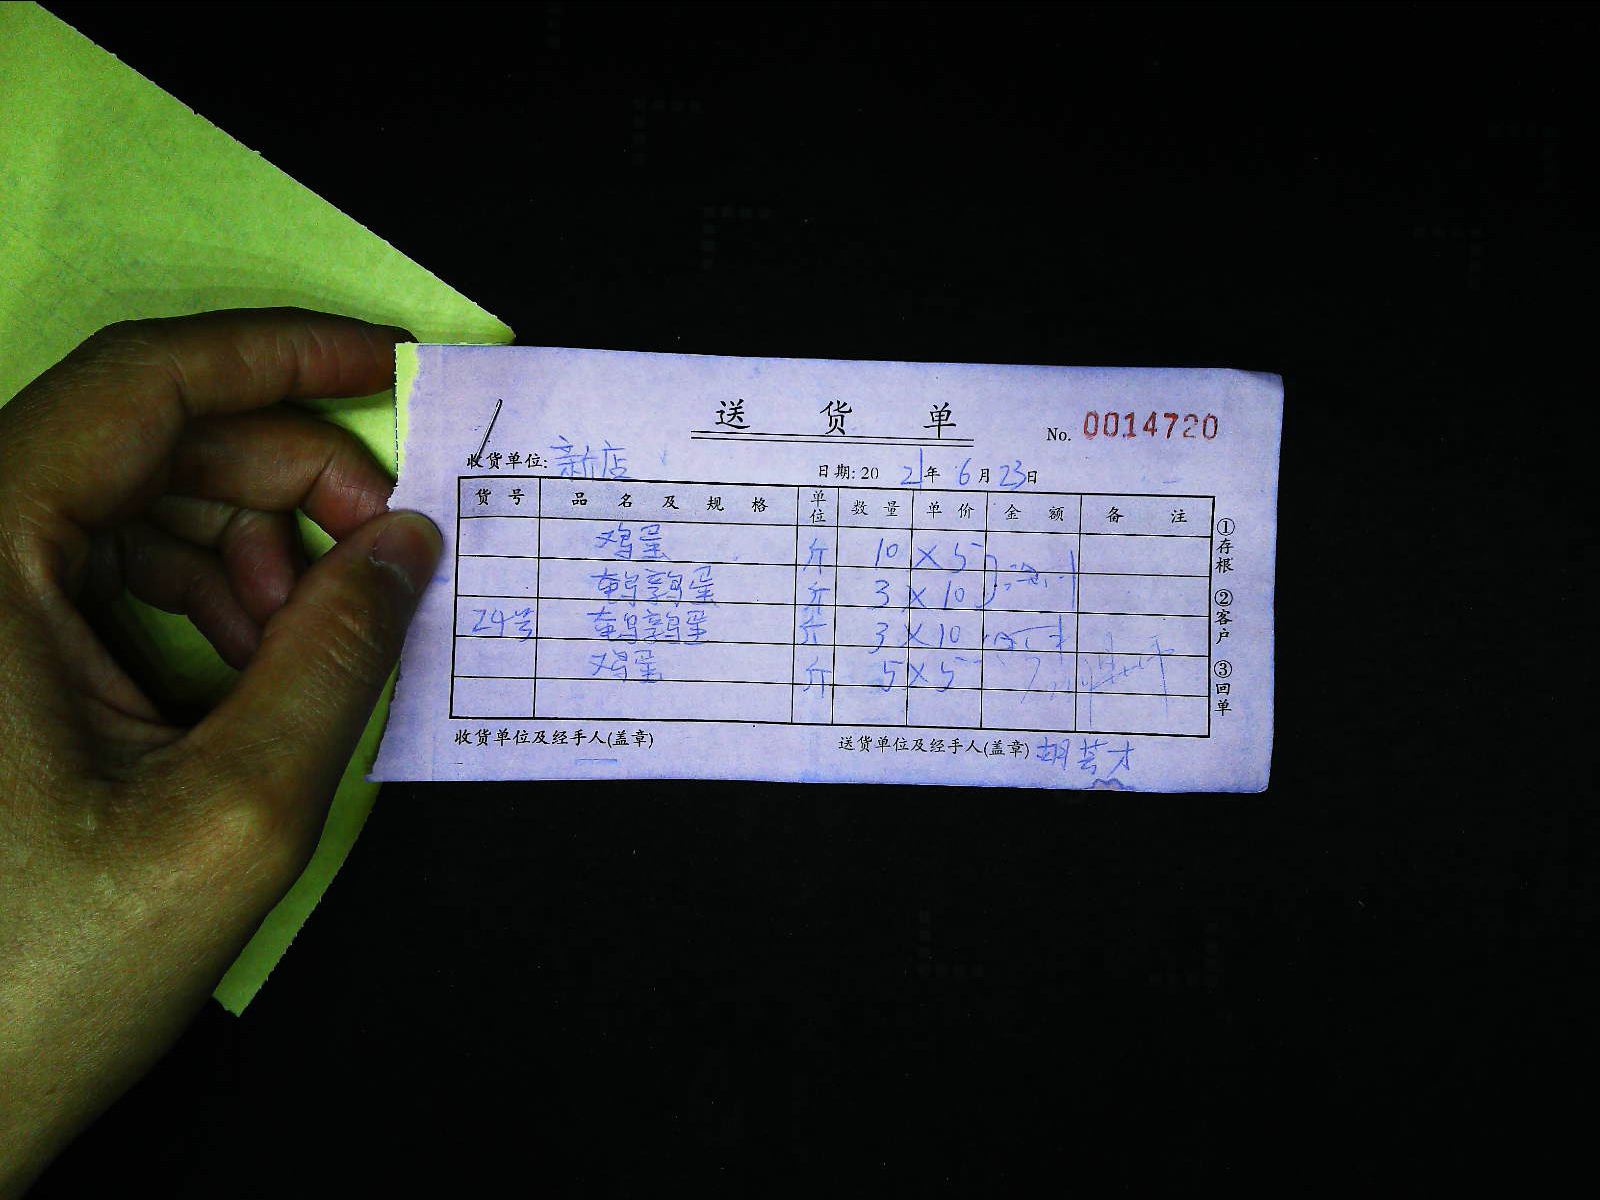 送 货 单
No. 0014720
收货单位: 新店
日期: 2021年 6月23日
货号 品名及规格 单位 数量 单价 金额 备注
鸡蛋 斤 10 × 5
鹌鹑蛋 斤 3 × 10
24号 鹌鹑蛋 斤 3 × 10
鸡蛋 斤 5 × 5
①存根 ②客户 ③回单
收货单位及经手人(盖章)
送货单位及经手人(盖章) 胡芸才